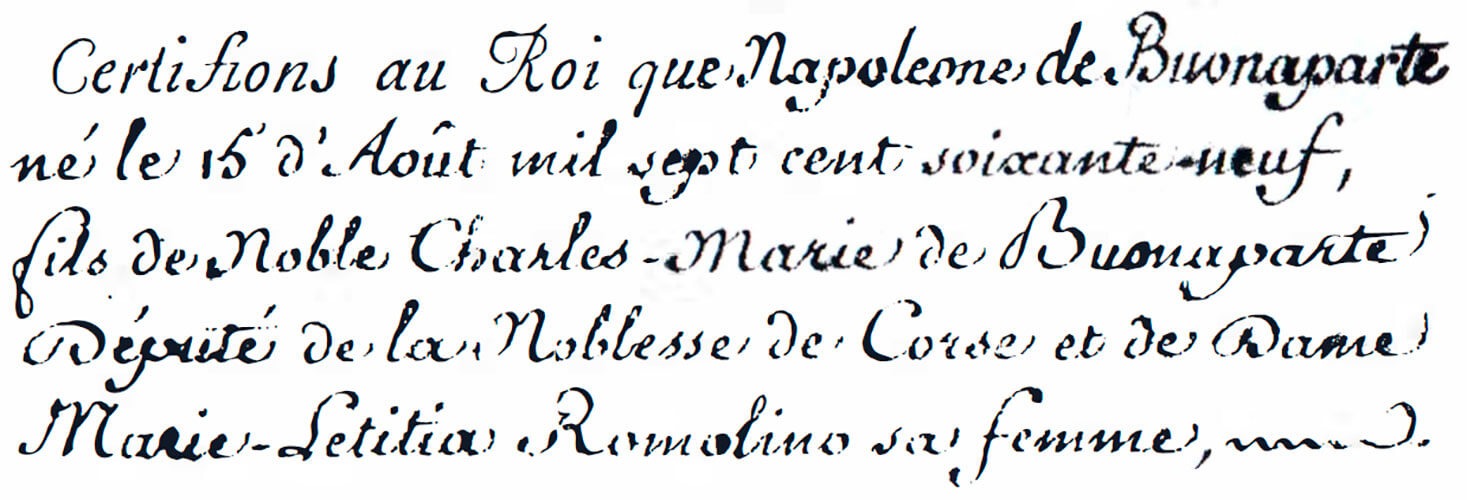 Certifions au Roi que Napoleone de Buonaparte
né le 15 d'Août mil sept cent soixante-neuf,
fils de Noble Charles-Marie de Buonaparte
Député de la Noblesse de Corse et de Dame
Marie-Letitia Romolino sa femme,